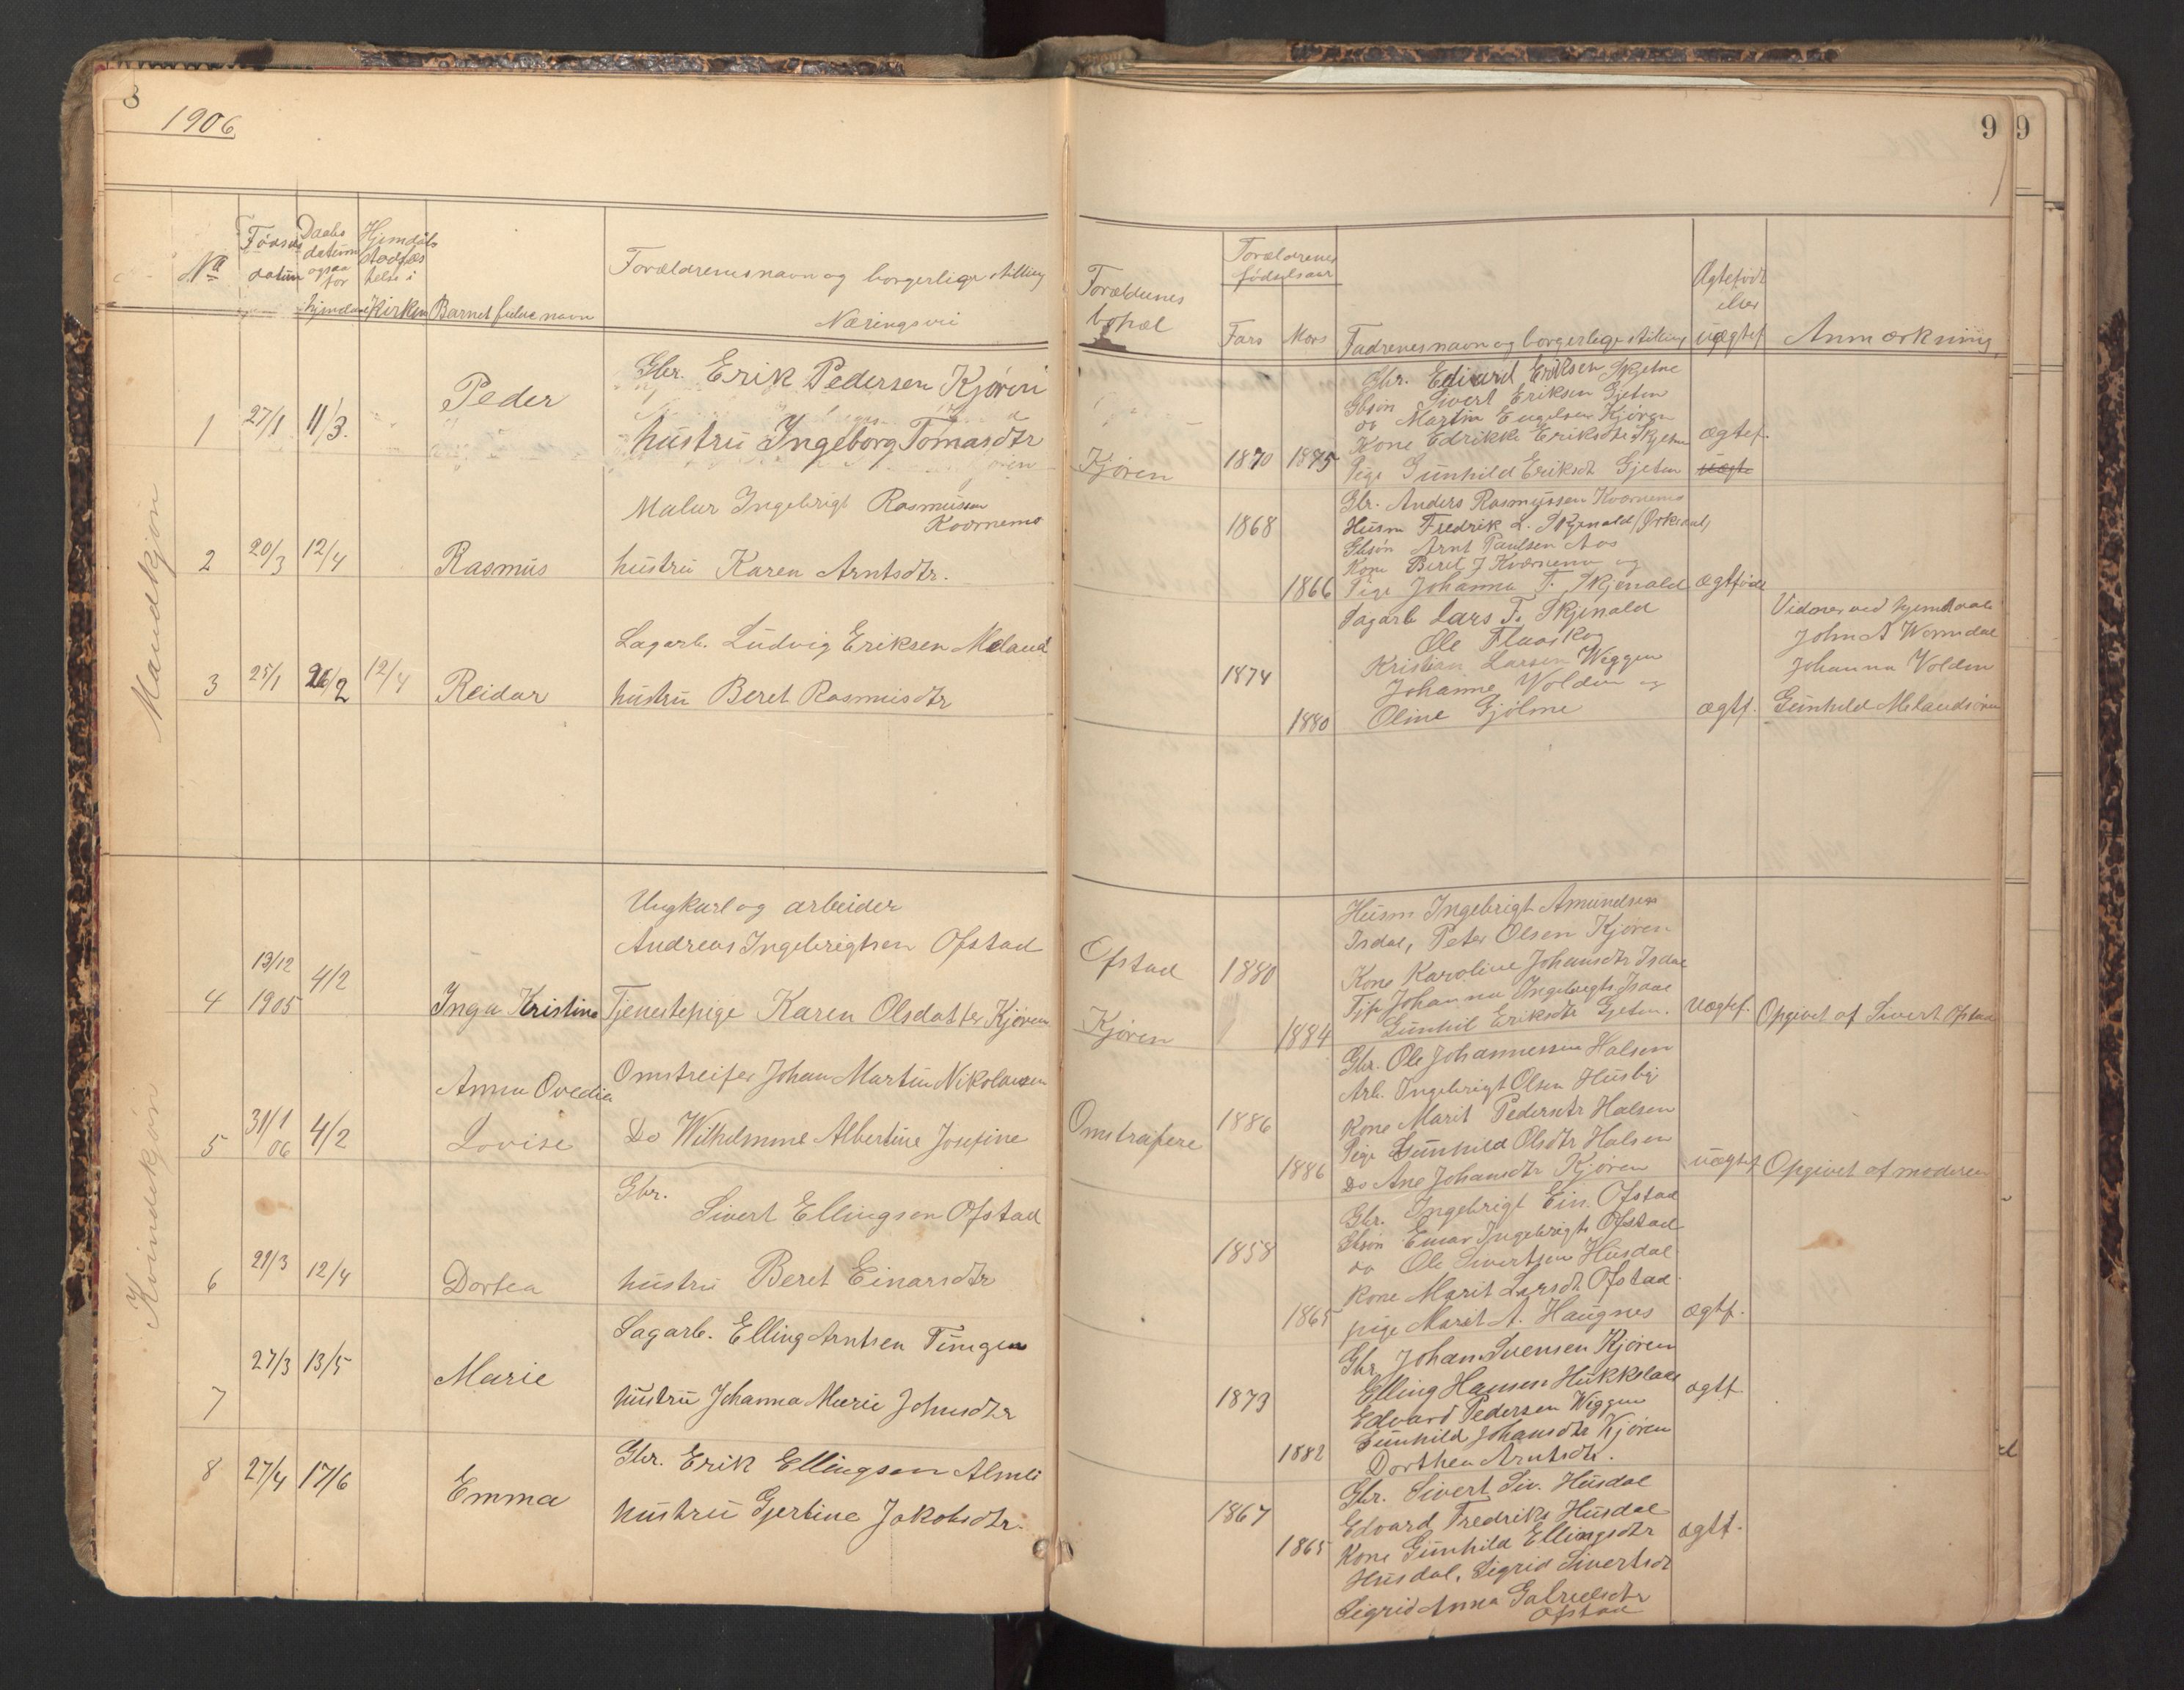 8
1906
No
Fødsels datum
Daabs datum ogsaa for hjemdøbte
Hjemdøbs stadfæstelse i Kirken
Barnet fulde navn
Forældrenes navn og borgerlige stilling
Næringsvei
Mandkjøn
1 27/1 11/3. Peder
Gbr. Erik Pedersen Kjøren
hustru Ingeborg Tomasdtr
2 20/3 12/4 Rasmus
Malar Ingebrigt Rasmussen
Kvernemo
hustru Karen Arntsdtr.
3 25/1 26/2 12/4 Reidar
Sagarb. Ludvig Eriksen Meland
hustru Beret Rasmusdtr
Kvindekjøn
4 13/12 1905 4/2 Inga Kristine
Ungkarl og arbeider
Andreas Ingebrigtsen Ofstad
Tjenestepige Karen Olsdatter Kjøren
5 31/1 06 4/2 Anna Ovedia
Lovise
Omstreifer Johan Martin Nikolausen
Do Wilhelmine Albertine Josefine
6 21/3 12/4 Dortea
Gbr.
Sivert Ellingsen Ofstad
hustru Beret Einarsdtr
7 27/3 13/5 Marie
Sagarb. Elling Arntsen Tungen
hustru Johanna Marie Johnsdtr
8 27/4 17/6 Emma
Gbr. Erik Ellingsen Almli
hustru Gjertine Jakobsdtr.
9
9
Forældrenes bopæl
Forældrenes fødselsaar
Fars
Mors
Fadrenes navn og borgerlige stilling
Ægtefødt eller uægtef.
Anmærkning
Kjøren 1870 1875
Gbr. Edvard Eriksen Skjetne
Gbsøn Sivert Eriksen Gjeten
do Martin Engelsen Kjøren
Kone Edrikke Eriksdtr Skjetne ægtef.
Pige Gunhild Eriksdt Gjeten uægte
1868
1866
Gbr. Anders Rasmussen Kvernemo
Husm Fredrik L. Skjenald (Orkedal)
Gbsøn Arnt Paulsen Aas
Kone Beret J Kvernemo og
Pige Johanna F. Skjenald ægtfødt
1874
1880
Sagarb Lars F. Skjenald
Ole Flaaskog
Kristian Larsen Wiggen
Johanne Volden og
Oline Gjølme ægtf.
Vidner ved hjemdaab
John A Wormdal
Johanna Volden
Gunhild Melandsøren
Ofstad 1880
Kjøren 1884
Husm Ingebrigt Amundsen
Isdal, Peter Olsen Kjøren
Kone Karoline Johansdtr Isdal
Tjp Johanna Ingebrigts Isdal
Gunhil Eriksdtr Gjeten. uægtef. Opgivet af Sivert Ofstad
Omstreifere 1886
1886
Gbr. Ole Johannessen Halsen
Arb. Ingebrigt Olsen Husby
Kone Marit Pedersdtr Halsen
Pige Gunhild Olsdtr Halsen
Do Ane Johansdtr Kjøren uægtef Opgivet af moderen
1858
1865
Gbr. Ingebrigt Ein. Ofstad
Gbsøn Einar Ingebrigts Ofstad
do Ole Sivertsen Husdal
Kone Marit Larsdt Ofstad
pige Marit A. Haugnes ægtf.
1873
1882
Gbr Johan Svensen Kjøren
Elling Hansen
Edvard Pedersen Wiggen ægtf.
Gunhild Johansdtr Kjøren
Dorthea Arntsdtr.
1867
1865
Gbr. Sivert Siv. Husdal
Edvard Fredriks Husdal
Kone Gunhild Ellingsdtr ægtf.
Husdal, Sigrid Sivertsdt
Sigrid Anna Gabrielsdtr
Ofstad